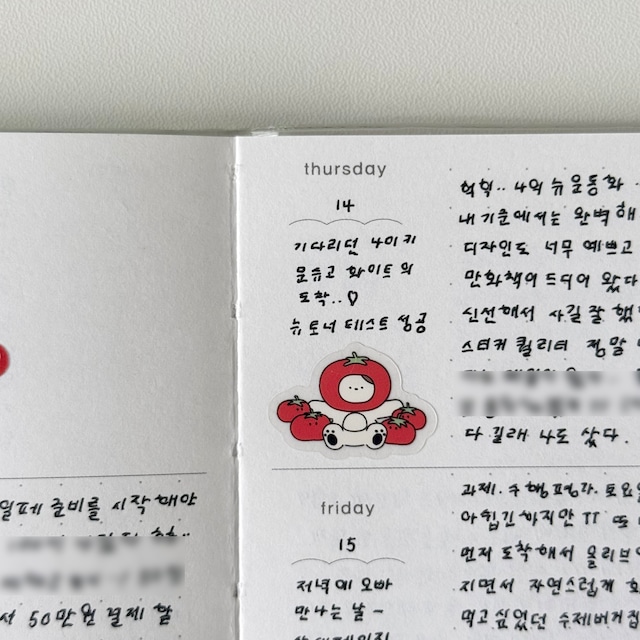 일페 준비를 시작해야
서 50만원 결제 할
thursday
14
기다리던 나이키
문슈고 화이트의
도착..♡
뉴 토너 테스트 성공
헉헉.. 나의 뉴 운동화
내 기준에서는 완벽해
디자인도 너무 예쁘고
만화책이 드디어 왔다
신선해서 사길 잘 했
스티커 퀄리티 정말
다 길래 나도 샀다.
friday
15
저녁에 오빠
만나는 날 ~
과제. 수행평가. 토요일
아쉽긴 하지만 TT 또
먼저 도착해서 올리브영
지면서 자연스럽게
먹고 싶었던 수제버거집